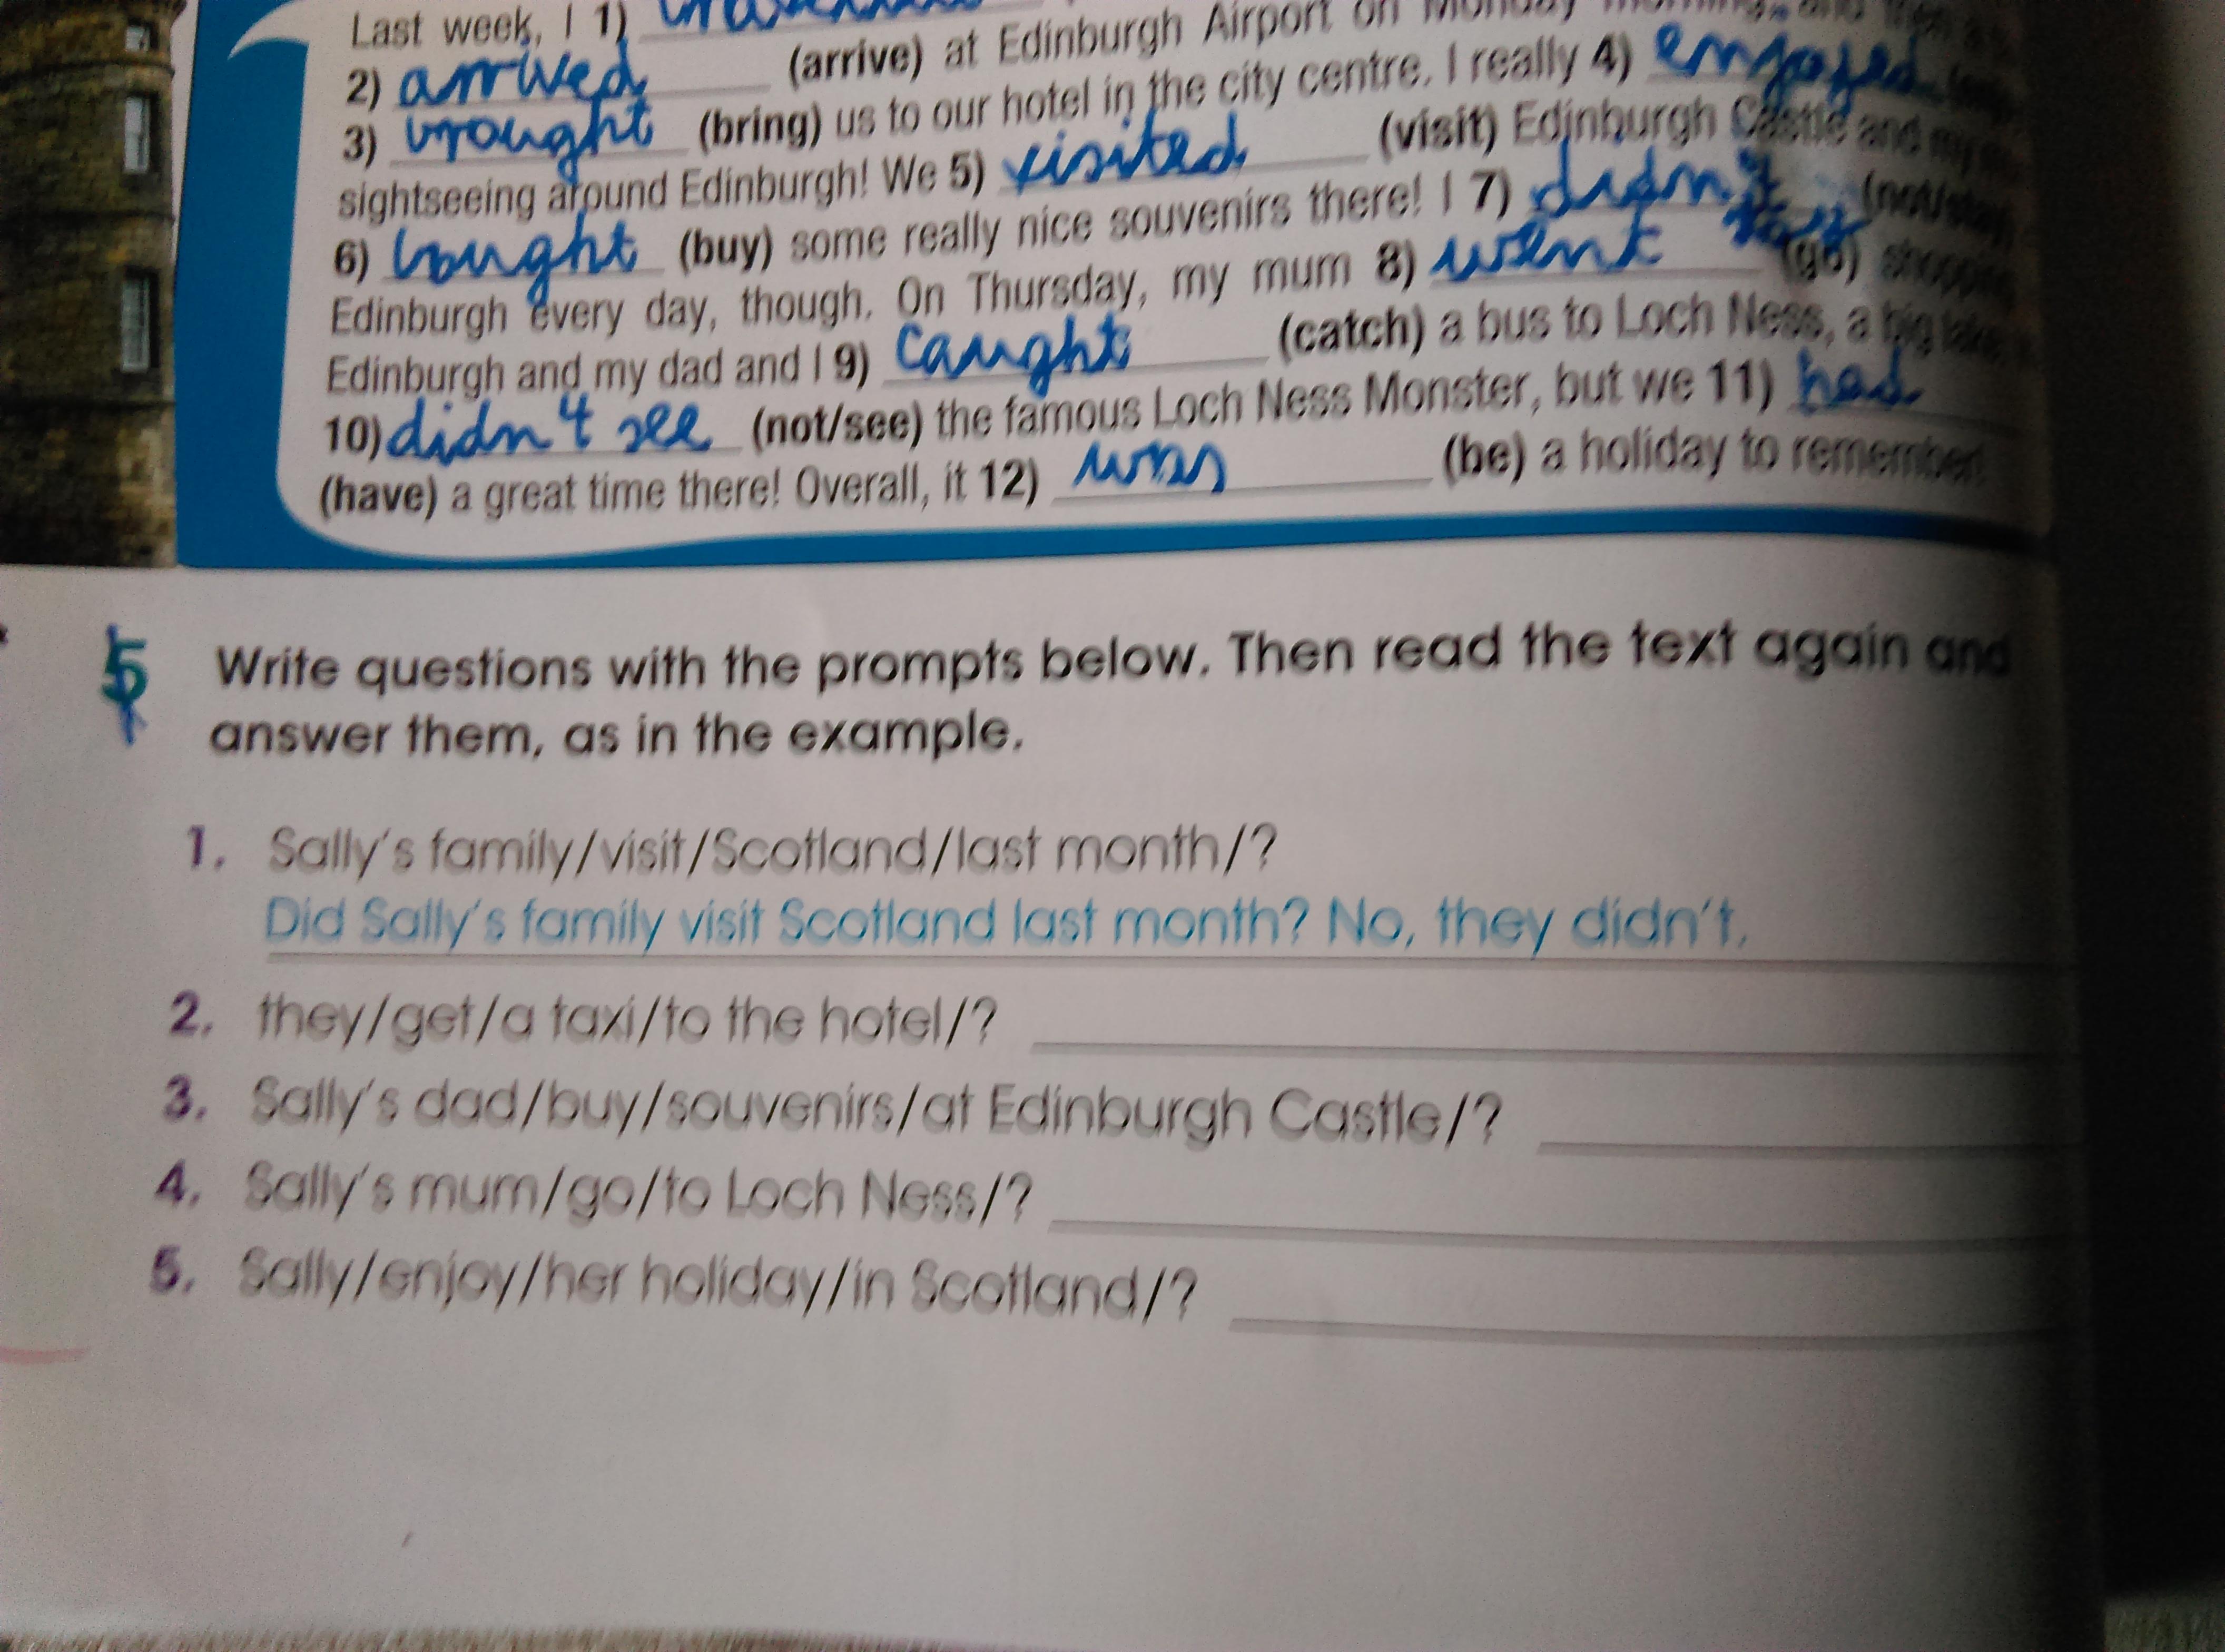 Last week, I 1)
2) arrived (arrive) at Edinburgh Airport on Monday morning, and then a
3) brought (bring) us to our hotel in the city centre. I really 4) enjoyed
sightseeing around Edinburgh! We 5) visited (visit) Edinburgh Castle and my
6) bought (buy) some really nice souvenirs there! I 7) didn't stay (not/stay)
Edinburgh every day, though. On Thursday, my mum 8) went (go) shopping
Edinburgh and my dad and I 9) caught (catch) a bus to Loch Ness, a big lake
10) didn't see (not/see) the famous Loch Ness Monster, but we 11) had
(have) a great time there! Overall, it 12) was (be) a holiday to remember!
5 Write questions with the prompts below. Then read the text again and
answer them, as in the example.
1. Sally's family/visit/Scotland/last month/?
Did Sally's family visit Scotland last month? No, they didn't.
2. they/get/a taxi/to the hotel/?
3. Sally's dad/buy/souvenirs/at Edinburgh Castle/?
4. Sally's mum/go/to Loch Ness/?
5. Sally/enjoy/her holiday/in Scotland/?